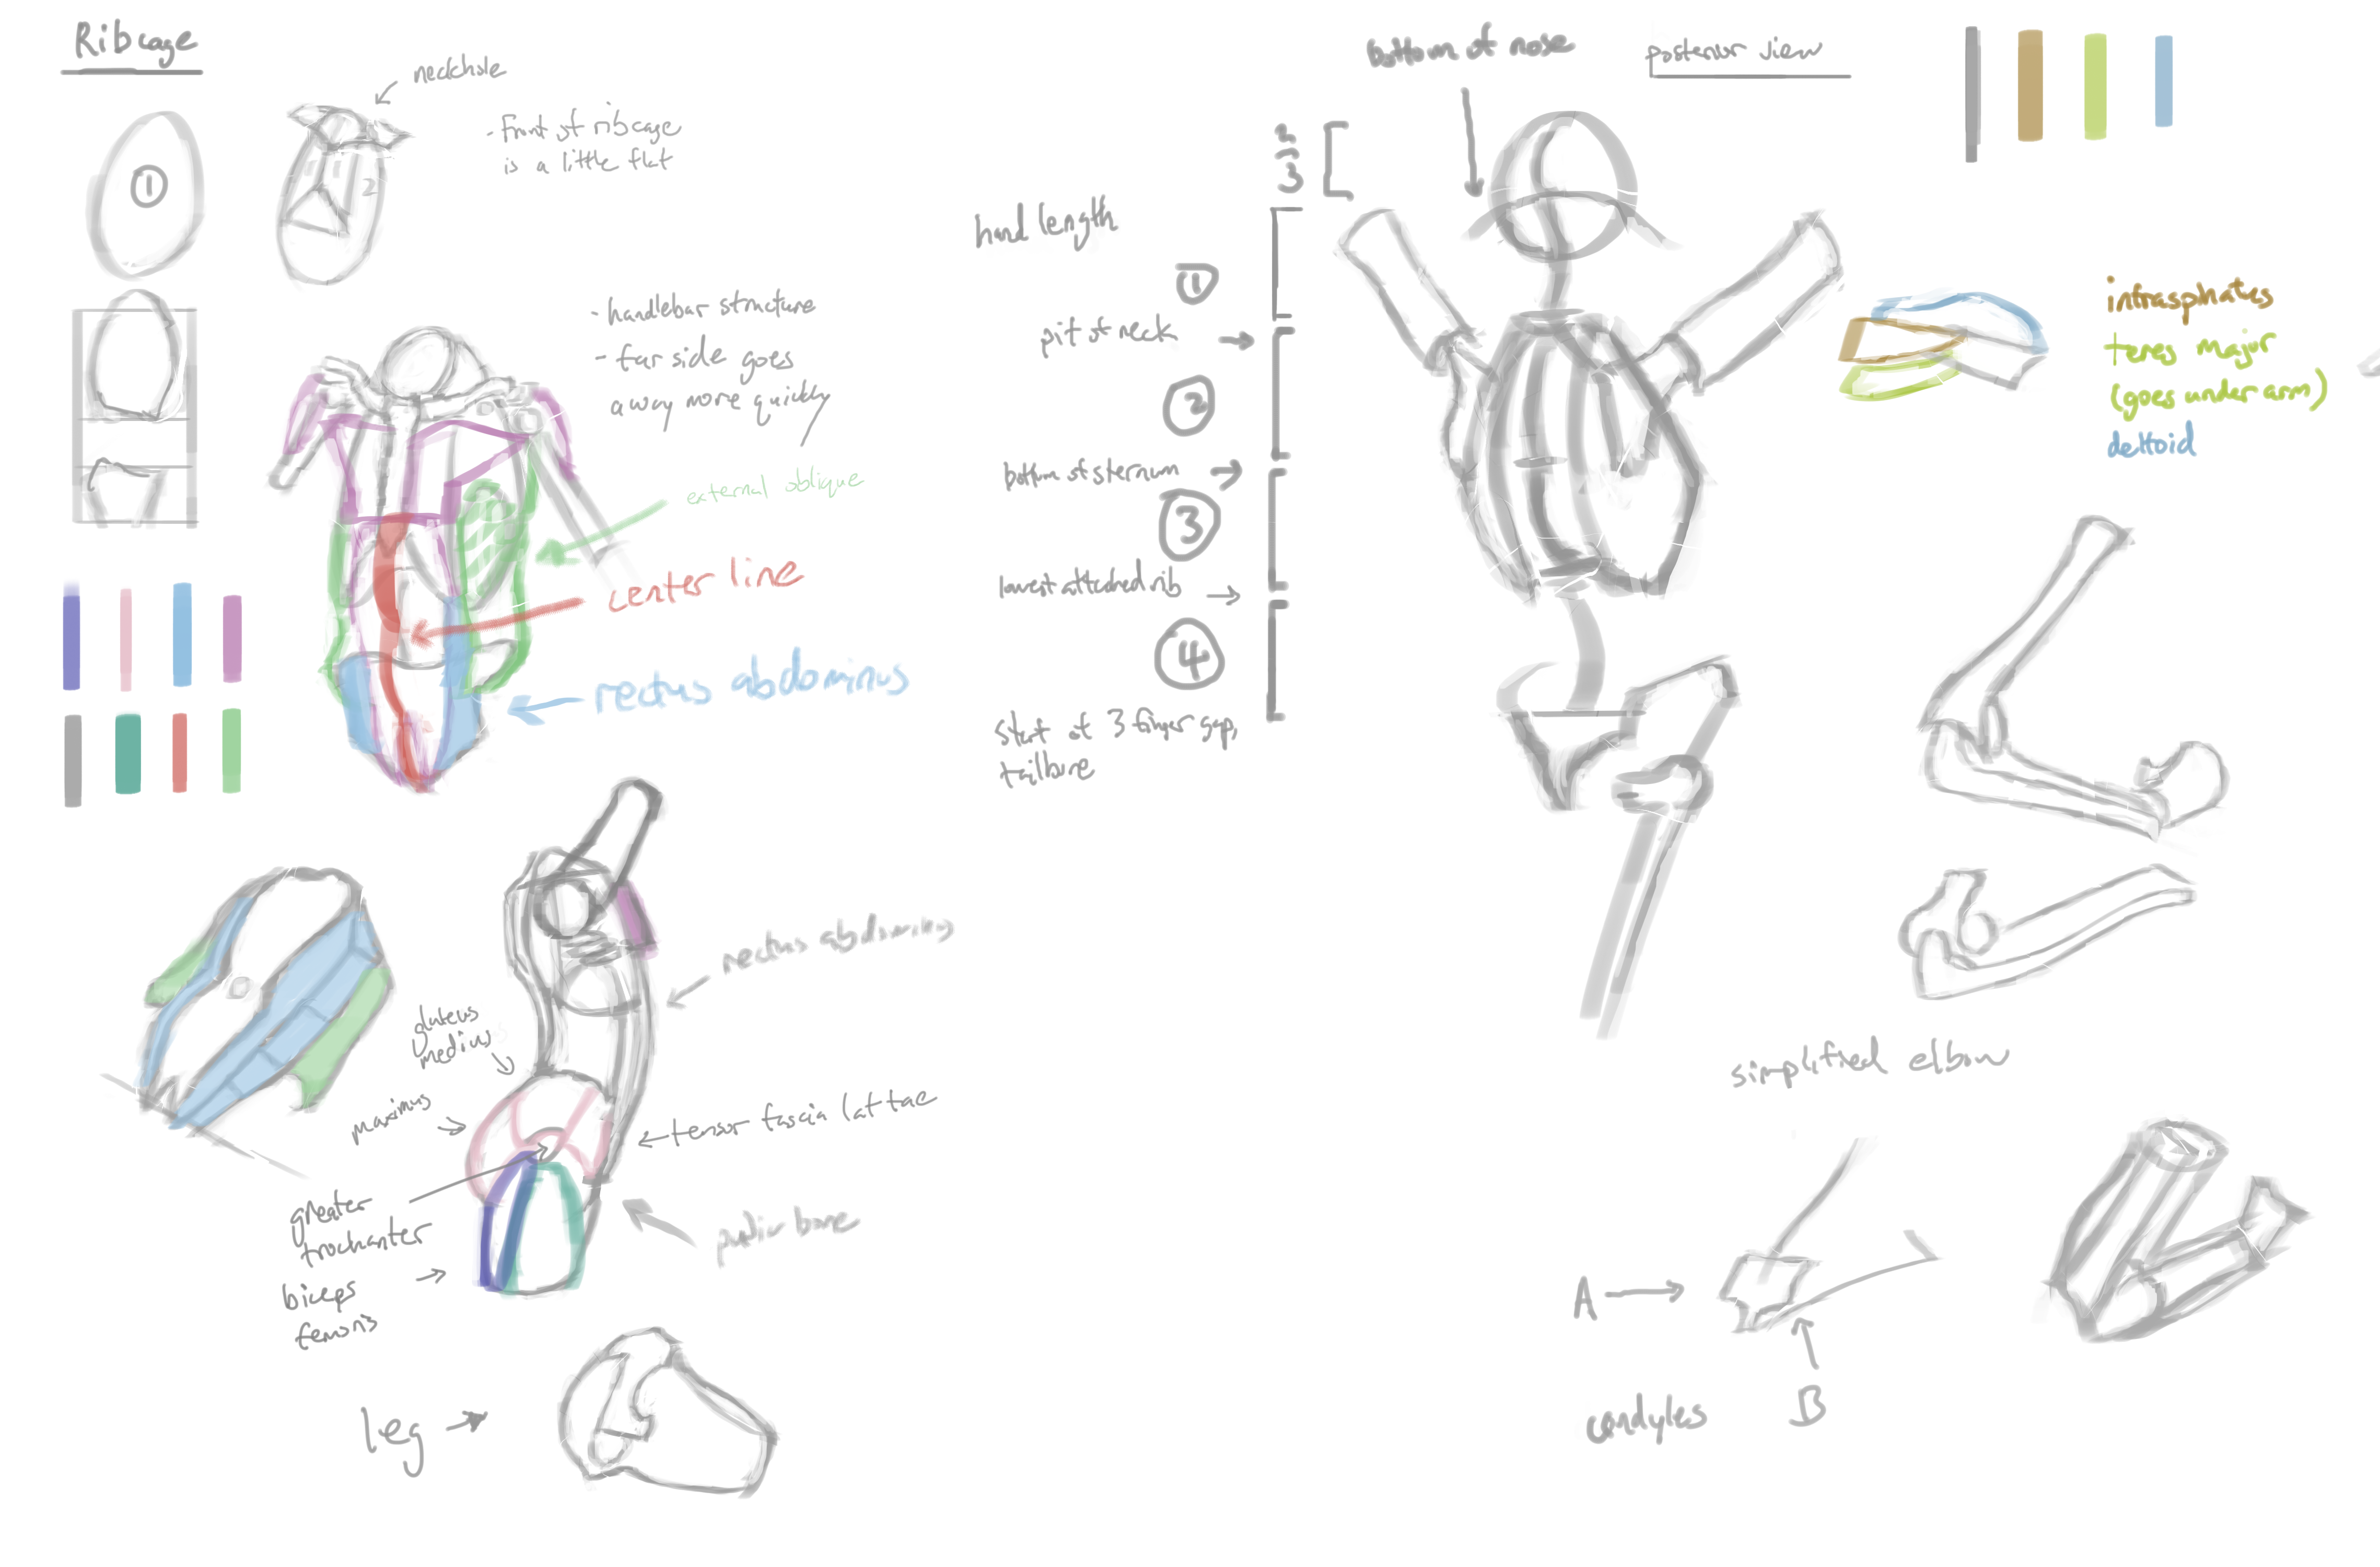 Ribcage
neckhole
- front of ribcage
is a little flat
1
2
- handlebar structure
- far side goes
away more quickly
external oblique
center line
rectus abdominus
rectus abdominus
gluteus
medius
maximus
tensor fascia lattae
greater
trochanter
pubic bone
biceps
femoris
leg
bottom of nose
posterior view
2/3
hand length
1
pit of neck
2
bottom of sternum
3
lowest attached rib
4
start at 3 finger gap,
tailbone
infrasphatus
teres major
(goes under arm)
deltoid
simplified elbow
A
B
condyles